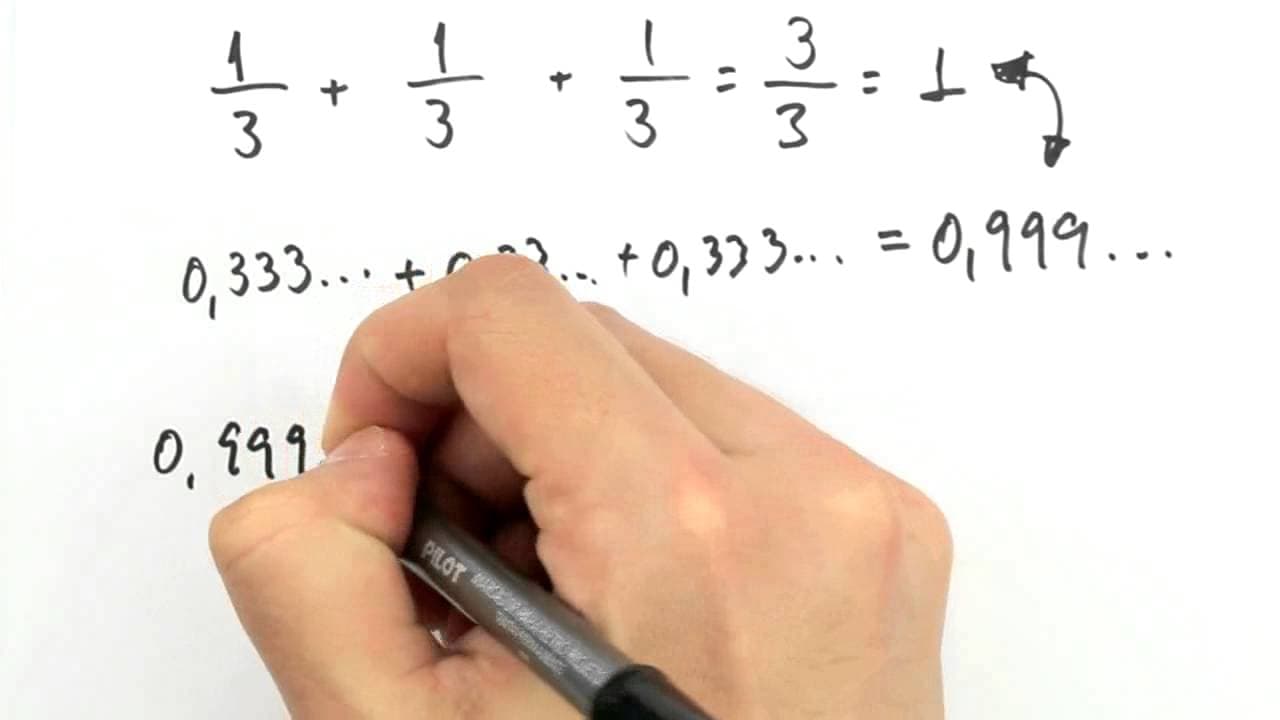 1/3 + 1/3 + 1/3 = 3/3 = 1
0,333... + + 0,333... = 0,999...
0,999
PILOT